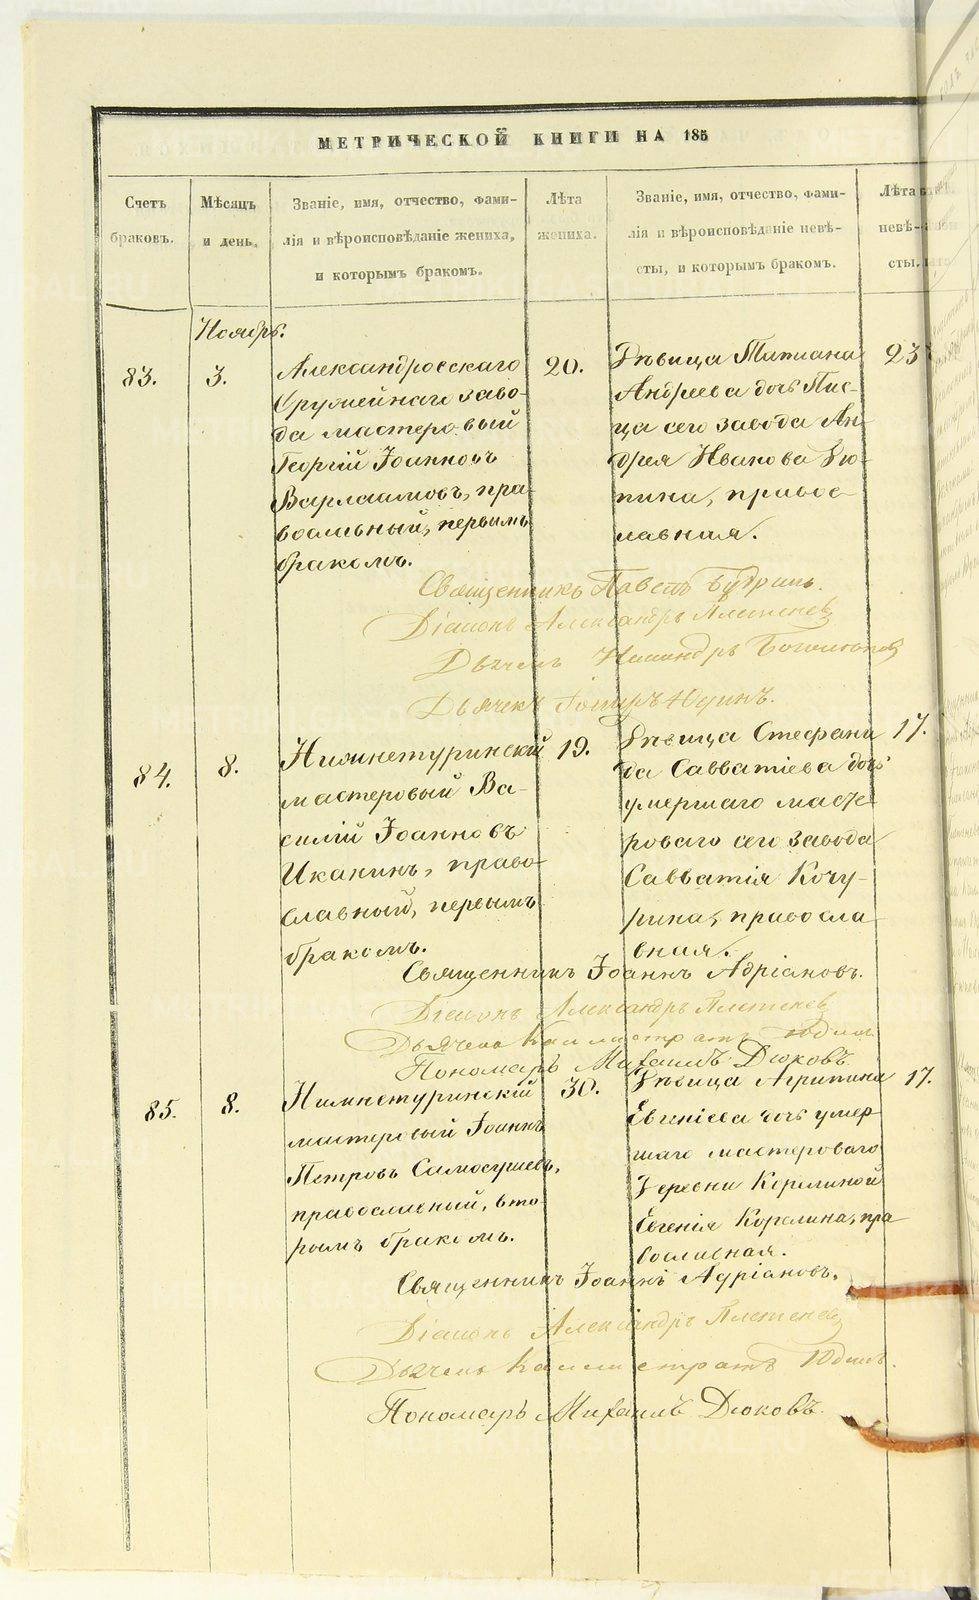 МЕТРИЧЕСКОЙ КНИГИ НА 185
Счетъ браковъ.
Мѣсяцъ и день.
Званіе, имя, отчество, фами-
лія и вѣроисповѣданіе жениха,
и которымъ бракомъ.
Лѣта жениха.
Званіе, имя, отчество, фами-
лія и вѣроисповѣданіе невѣ-
сты, и которымъ бракомъ.
Лѣта невѣ-
сты.
Ноябрь.
83.
3.
Александровскаго
Оружейнаго заво-
да мастеровый
Георгій Іоанновъ
Варлаамовъ, пра-
вославный, первымъ
бракомъ.
20.
Дѣвица Татиана
Андреева дочь Пис-
ца сего завода Ан-
дрея Иванова Дю-
пина, правос-
лавная.
23
Священникъ Павелъ
Діаконъ Александръ Плетенев
Дьячекъ
Дьячекъ Юдинъ.
84.
8.
Нижнетуринскій
мастеровый Ва-
силій Іоанновъ
Иканинъ, право-
славный, первымъ
бракомъ.
19.
Дѣвица Стефани
да Савватіева дочь
умершаго масте
роваго сего завода
Савватія Кочу-
рина, правосла
вная.
17.
Священникъ Іоаннъ Адріановъ.
Діаконъ Александръ Плетенев
Дьячекъ Каллистратъ Юдин
Пономарь Михаилъ Дюковъ
85.
8.
Нижнетуринскій
мастеровый Іоаннъ
Петровъ Самосушевъ,
православный, вто-
рымъ бракомъ.
30.
Дѣвица Агрипина
Евгеніева дочь умер
шаго мастероваго
Деревни Корелиной
Евгенія Корелина, пра
вославная.
17.
Священникъ Іоаннъ Адріановъ.
Діаконъ Александръ Плетенев
Дьячекъ Каллистратъ Юдинъ.
Пономарь Михаилъ Дюковъ.